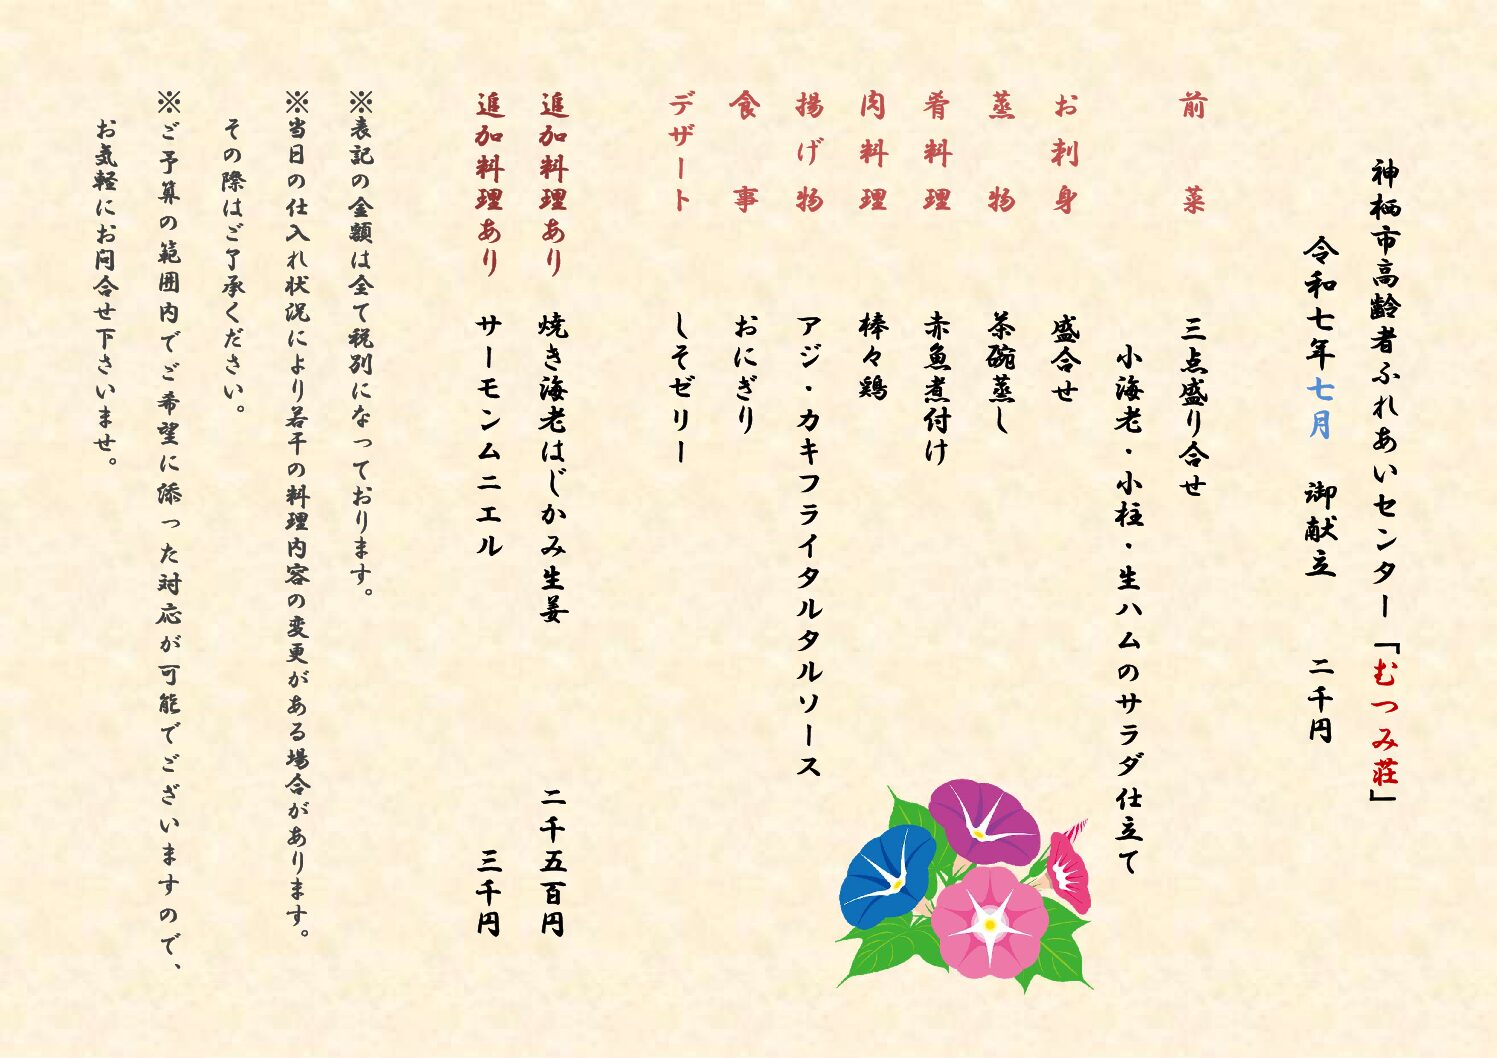 神栖市高齢者ふれあいセンター「むつみ荘」
令和七年七月　御献立　　二千円
前菜　三点盛り合せ
小海老・小柱・生ハムのサラダ仕立て
お刺身　盛合せ
蒸物　茶碗蒸し
肴料理　赤魚煮付け
肉料理　棒々鶏
揚げ物　アジ・カキフライタルタルソース
食事　おにぎり
デザート　しそゼリー
追加料理あり　焼き海老はじかみ生姜　二千五百円
追加料理あり　サーモンムニエル　三千円
※表記の金額は全て税別になっております。
※当日の仕入れ状況により若干の料理内容の変更がある場合があります。
その際はご了承ください。
※ご予算の範囲内でご希望に添った対応が可能でございますので、
お気軽にお問合せ下さいませ。